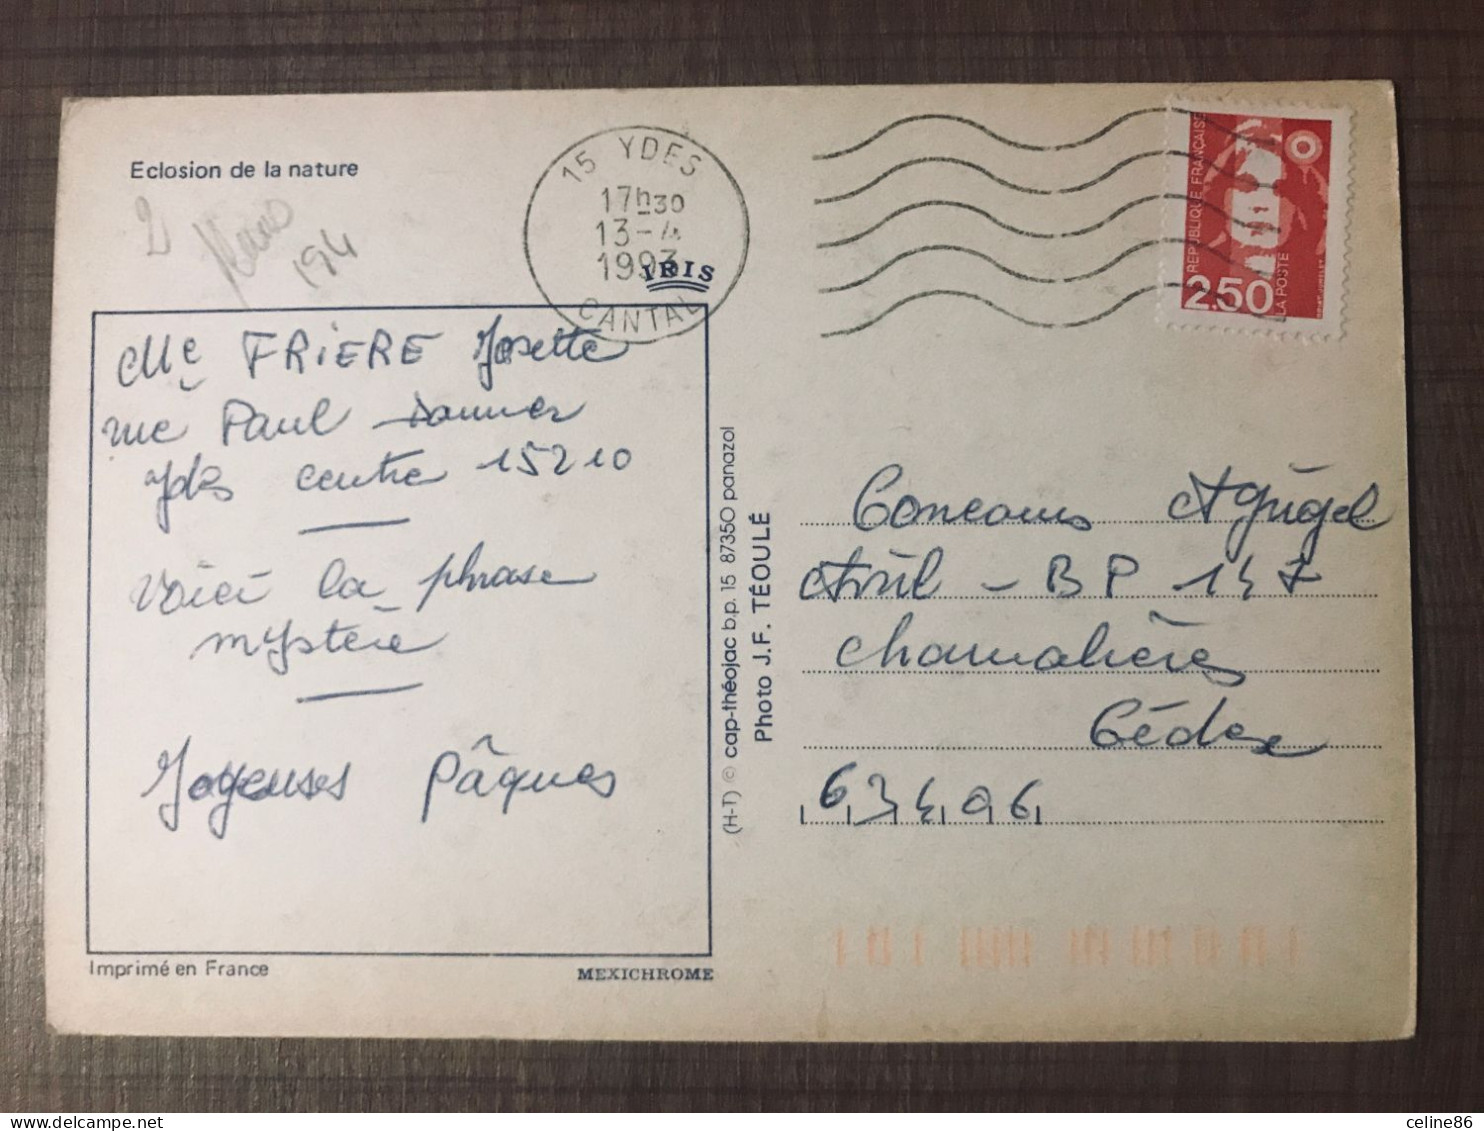 Eclosion de la nature
2
194
15 YDES
17h30
13-4
1993
CANTAL
IRIS
REPUBLIQUE FRANÇAISE
LA POSTE
2.50
Mlle FRIERE Josette
rue Paul
Ydes centre 15210
Voici la phrase
mystère
Joyeuses Pâques
Imprimé en France
MEXICHROME
(H-T) © cap-théojac b.p. 15 87350 panazol
Photo J.F. TÉOULÉ
Concours Agrigel
Avril - BP 147
Chamalières
Cédex
63406
celine86